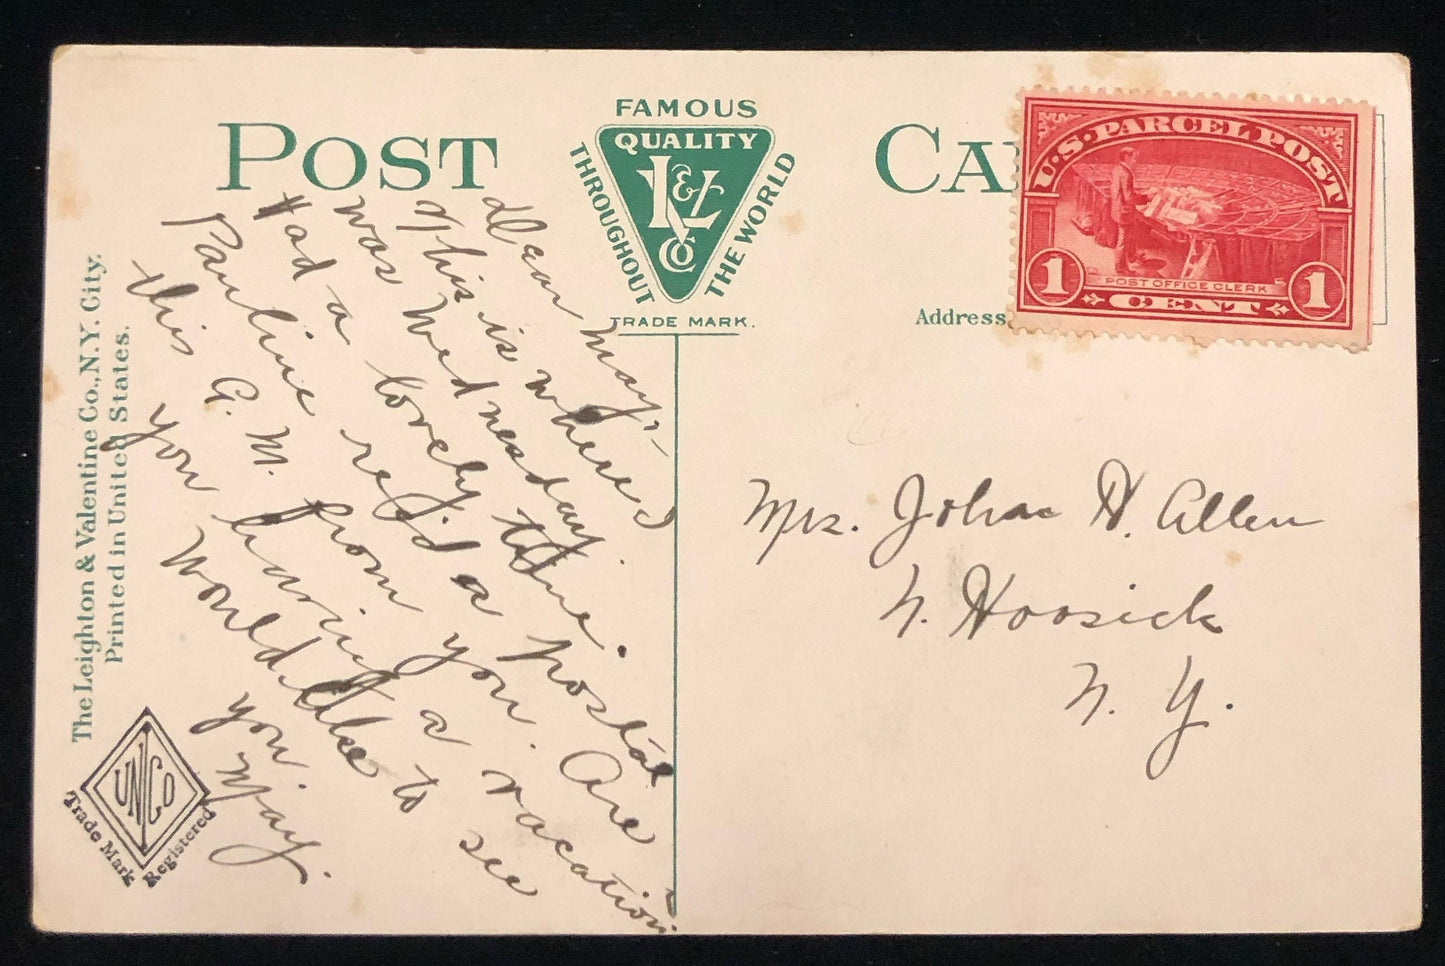 POST CA
FAMOUS
QUALITY
L & V
Co
THROUGHOUT
THE WORLD
TRADE MARK.
U.S. PARCEL POST
POST OFFICE CLERK
1 CENT 1
Address
Dear May:-
This is where I
was Wednesday.
Had a lovely time.
Pauline rec'd a postal
this A. M. from you. Are
you having a vacation
Would like to see
you.
May.
Mrs. John H. Allen
N. Hoosick
N. Y.
The Leighton & Valentine Co., N.Y. City.
Printed in United States.
UNICO
Trade Mark Registered